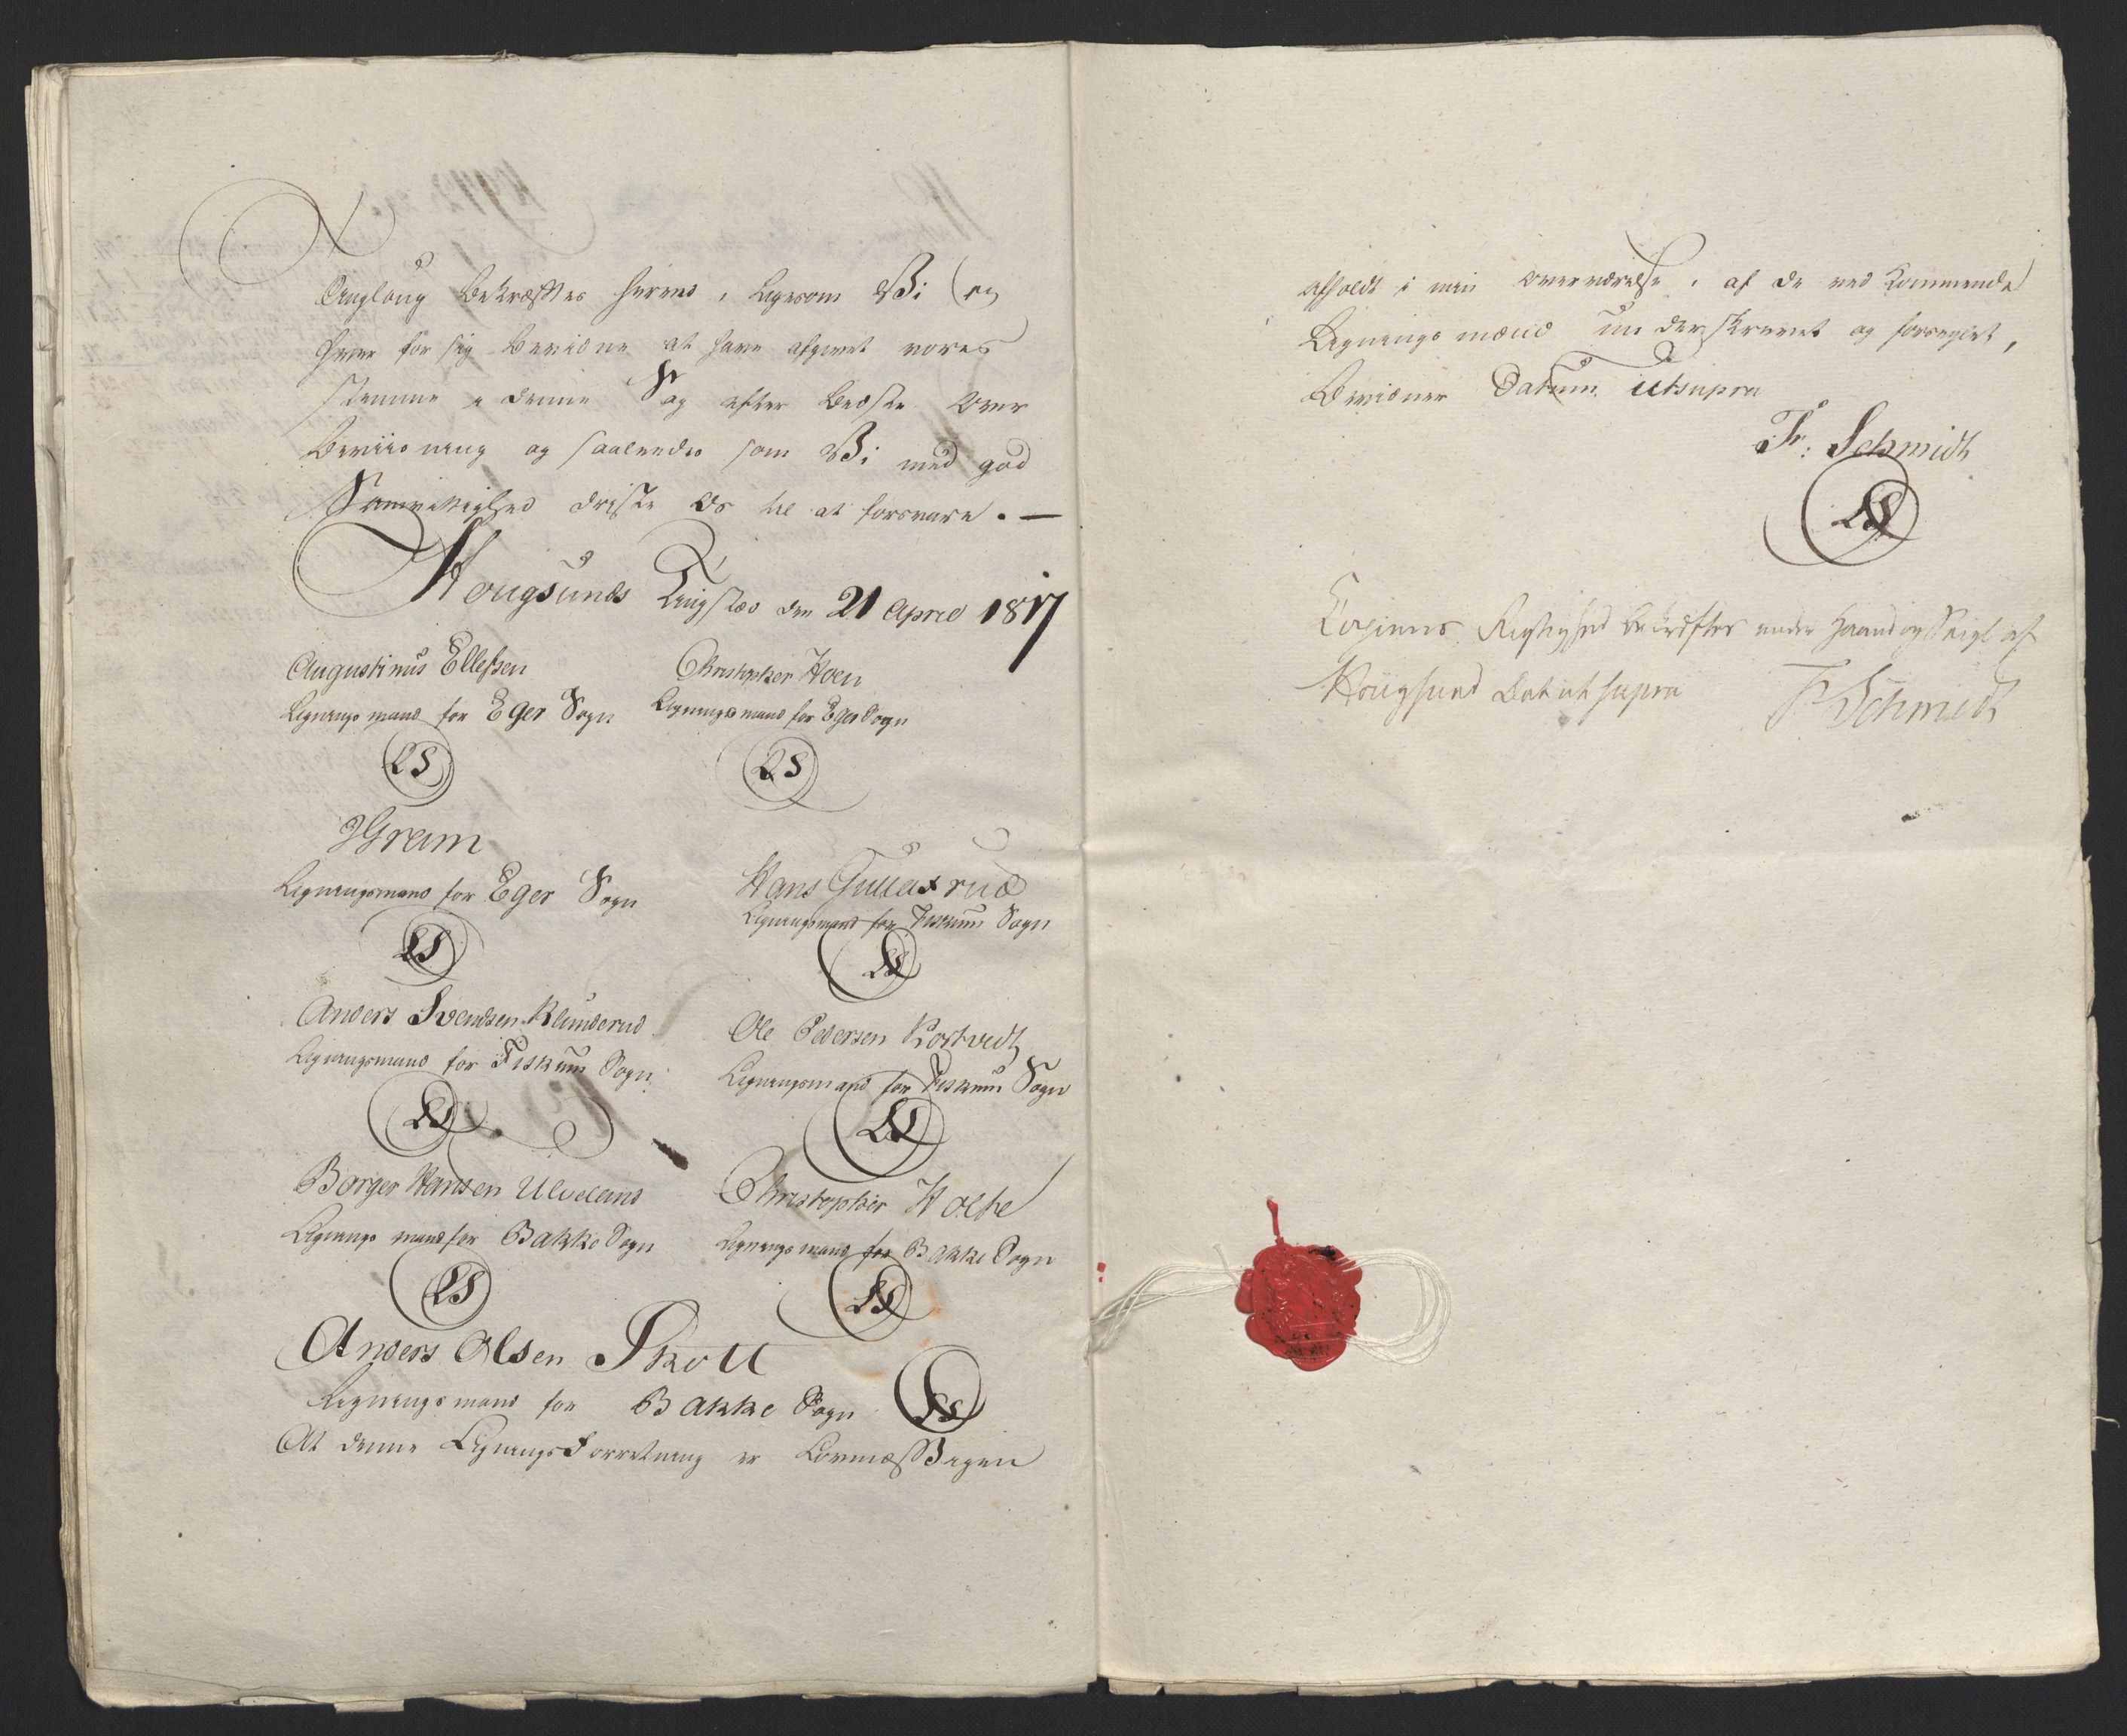 bekræftes herved, ligesom Vi en
hver for sig bevidne at have afgivet vores
Stemme i denne Sag efter bedste Over
beviisning og saaledes som Vi med god
Samvittighed driste os til at forsvare. —
Hougsunds Tingsted den 21 April 1817
Augustinus Ellefsen
Lignings mand for Eger Sogn
LS
Christopher Hoen
Ligningsmand for Eger Sogn
LS
JGram
Ligningsmand for Eger Sogn
LS
Hans
Ligningsmand for Fiskum Sogn
LS
Anders Svendsen Klunderud
Ligningsmand for Fiskum Sogn
LS
Ole Pedersen Kostvedt
Ligningsmand for Fiskum Sogn
LS
Borger Hansen Ulveland
Lignings mand for Bakke Sogn
LS
Christopher Holte
Lignings mand for Bakke Sogn
LS
Anders Olsen Skott
Lignings mand for Bakke Sogn LS
At denne LigningsForretning er Lovmæssigen
afholdt i min Overværelse, af de ved Kommende
Lignings mænd under skrevet og forseglet,
Bevidner Datum ut supra
Fr: Schmidt
LS
Copiens Rigtighed bekræftes under Haand og Seigl af
Hougsund Dat ut supra
F Schmidt